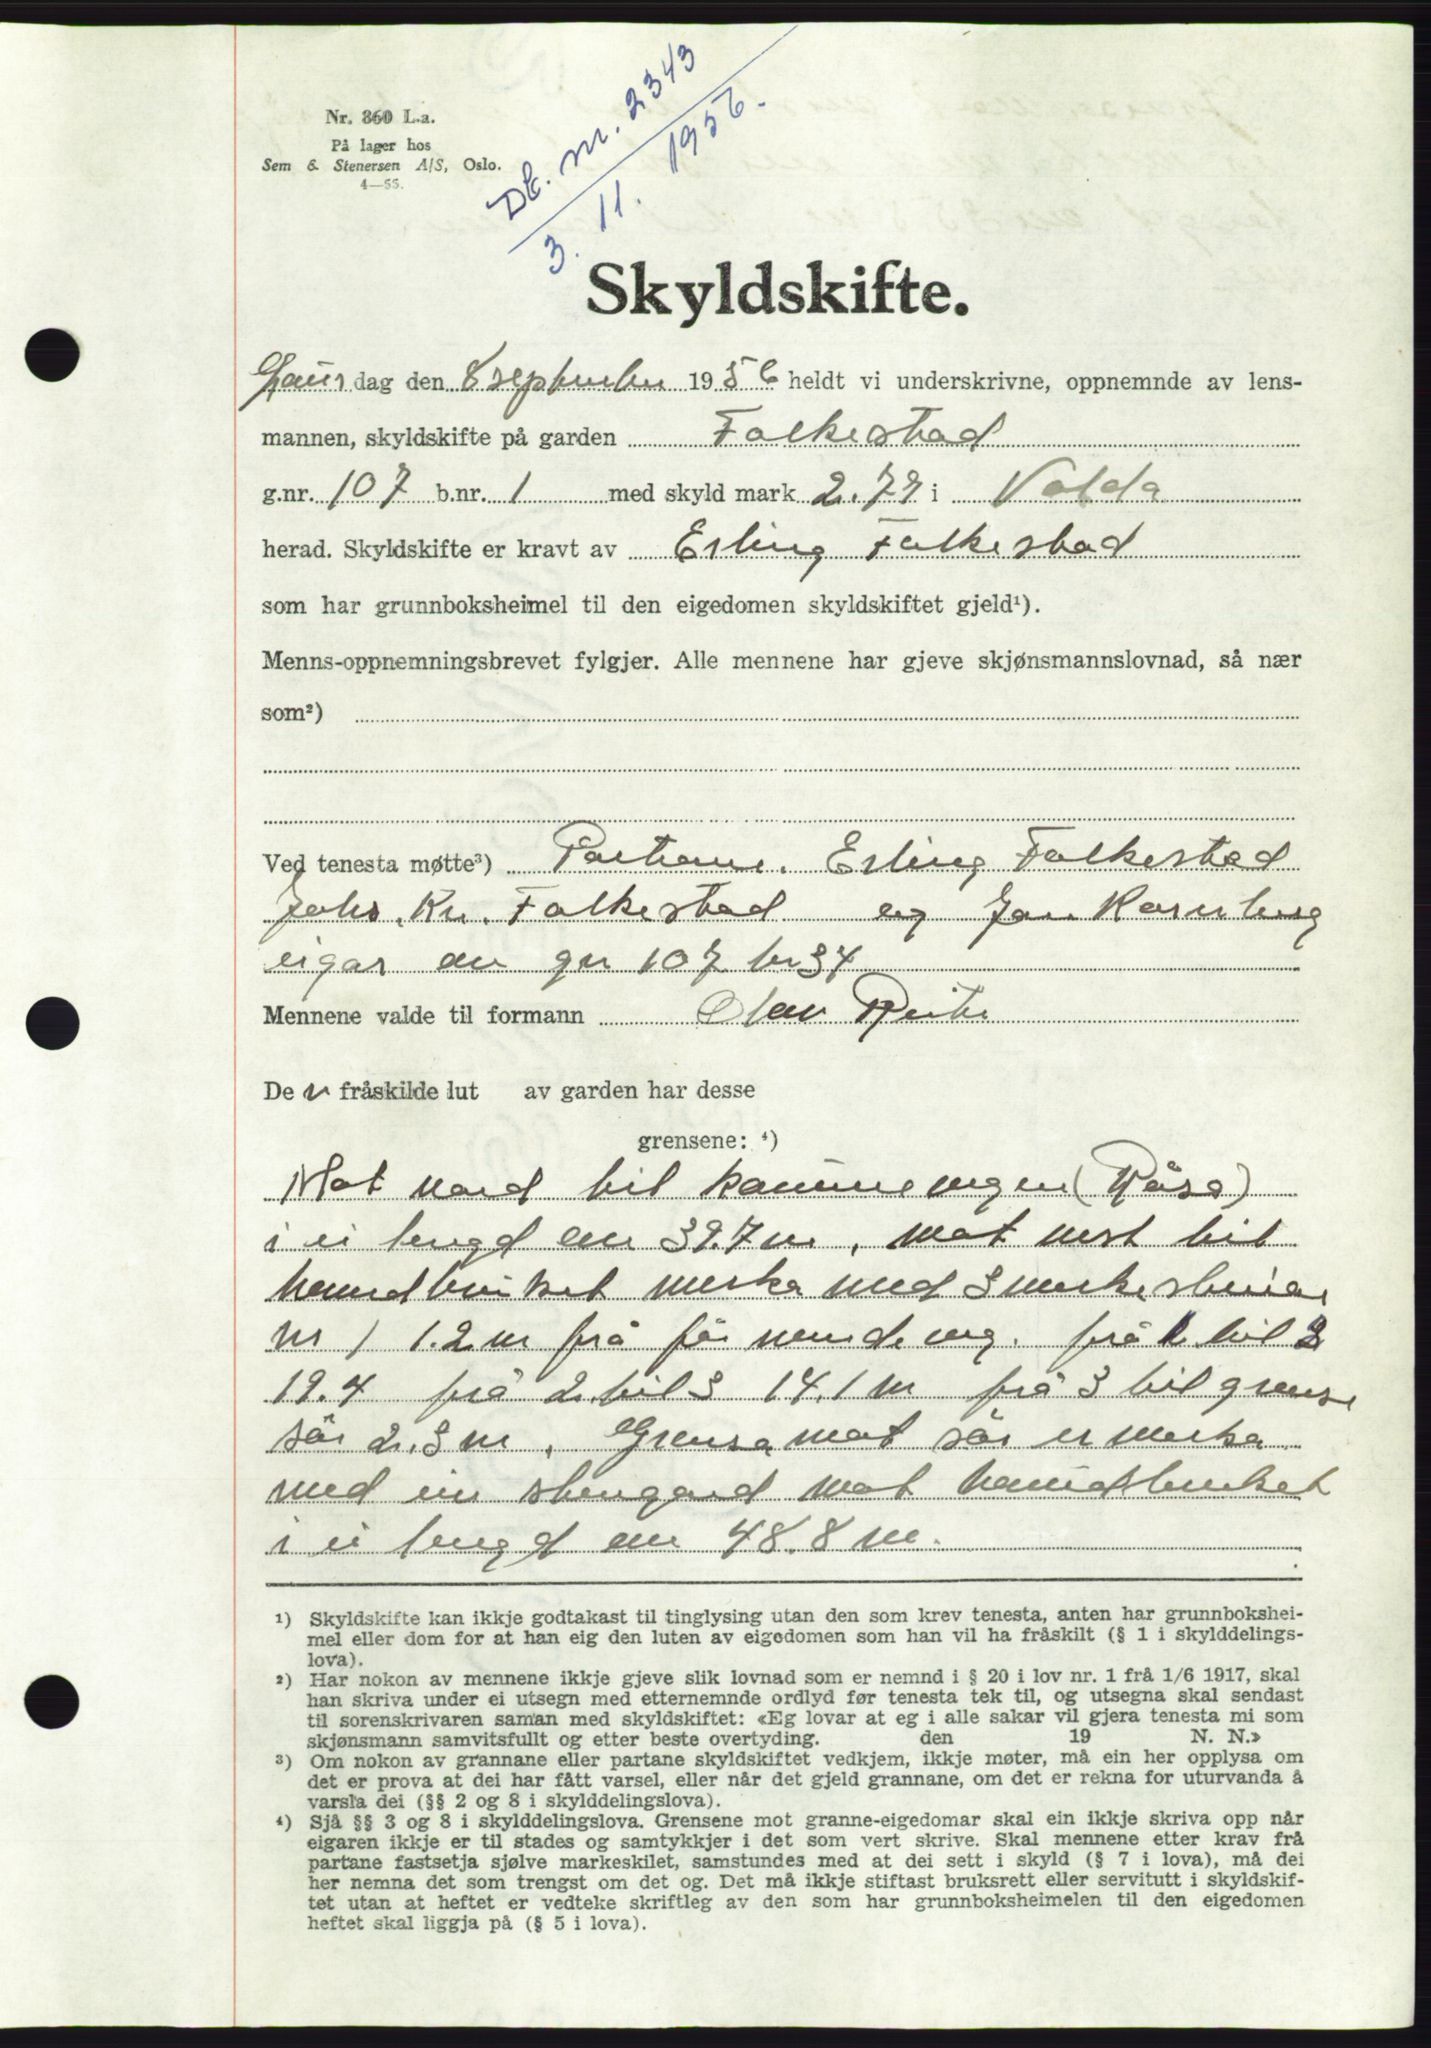 Nr. 860 L.a.
På lager hos
Sem & Stenersen A/S, Oslo.
4—55.
Db. nr. 2343
3. 11. 1956.
Skyldskifte.
Laurdag den 8 september 1956 heldt vi underskrivne, oppnemnde av lens-
mannen, skyldskifte på garden Folkestad
g.nr. 107 b.nr. 1 med skyld mark 2.77 i Volda
herad. Skyldskifte er kravt av Erling Folkestad
som har grunnboksheimel til den eigedomen skyldskiftet gjeld¹).
Menns-oppnemningsbrevet fylgjer. Alle mennene har gjeve skjønsmannslovnad, så nær
som²)
Ved tenesta møtte³) Partane. Erling Folkestad
Johs. Kr. Folkestad og Jan
eigar av gnr 107 br 34
Mennene valde til formann Olav
De n fråskilde lut av garden har desse
grensene: ⁴)
Mot nord til vegen (Råsa)
i ei lengd av 39.7 m, mot vest til
merka med 3 merkesteinar
nr 1 1.2 m frå veg. frå 1 til 2
19.4 frå 2 til 3 14.1 m frå 3 til grense
sør 2.3 m, Grensa mot sør er merka
med ein steingard mot
i ei lengd av 48.8 m.
¹) Skyldskifte kan ikkje godtakast til tinglysing utan den som krev tenesta, anten har grunnbokshei-
mel eller dom for at han eig den luten av eigedomen som han vil ha fråskilt (§ 1 i skylddelings-
lova).
²) Har nokon av mennene ikkje gjeve slik lovnad som er nemnd i § 20 i lov nr. 1 frå 1/6 1917, skal
han skriva under ei utsegn med etternemnde ordlyd før tenesta tek til, og utsegna skal sendast
til sorenskrivaren saman med skyldskiftet: «Eg lovar at eg i alle sakar vil gjera tenesta mi som
skjønsmann samvitsfullt og etter beste overtyding. den 19 N. N.»
³) Om nokon av grannane eller partane skyldskiftet vedkjem, ikkje møter, må ein her opplysa om
det er prova at dei har fått varsel, eller når det gjeld grannane, om det er rekna for uturvanda å
varsla dei (§§ 2 og 8 i skylddelingslova).
⁴) Sjå §§ 3 og 8 i skylddelingslova. Grensene mot granne-eigedomar skal ein ikkje skriva opp når
eigaren ikkje er til stades og samtykkjer i det som vert skrive. Skal mennene etter krav frå
partane fastsetja sjølve markeskilet, samstundes med at dei sett i skyld (§ 7 i lova), må dei
her nemna det som trengst om det og. Det må ikkje stiftast bruksrett eller servitutt i skyldskif-
tet utan at heftet er vedteke skriftleg av den som har grunnboksheimelen til den eigedomen
heftet skal liggja på (§ 5 i lova).